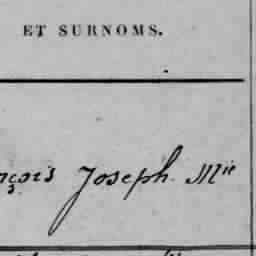 ET SURNOMS.
nçois Joseph Mie